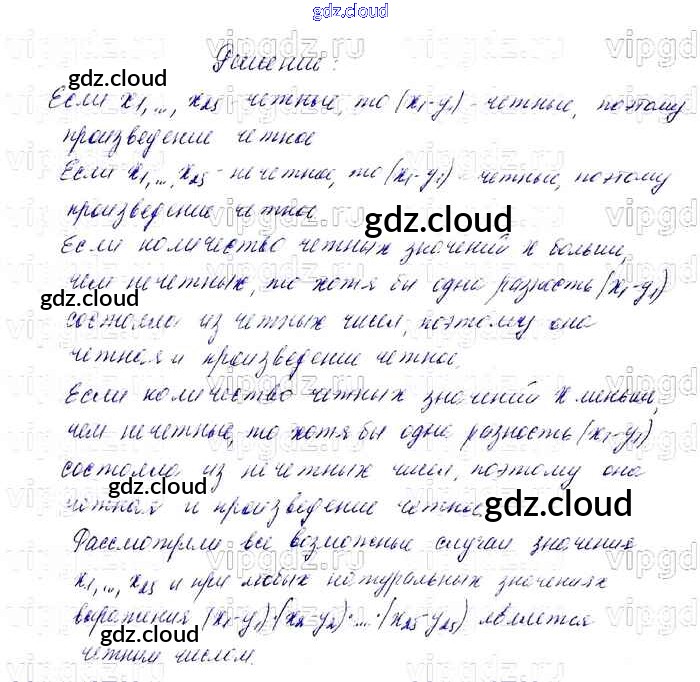 gdz.cloud
Решение:
Если x₁,…, x₂₅ - четные, то (x₁-y₁) - четные, поэтому
произведение четное
Если x₁,…, x₂₅ - нечетное, то (x₁-y₁) - четные, поэтому
произведение четное.
Если количество четных значений x больши,
чем нечетных, то хотя бы одна разность (x₁-y₁)
состояла из четных чисел, поэтому она
четная и произведение четное.
Если количество четных значений x меньши,
чем нечетные, то хотя бы одна разность (x₁-y₁)
состояла из нечетных чисел, поэтому она
четная и произведение четное.
Рассмотрели все возможные случаи значения
x₁,…, x₂₅ и при любых натуральных значениях
выражения (x₁-y₁)·(x₂-y₂)·…·(x₂₅-y₂₅) является
четным числом.